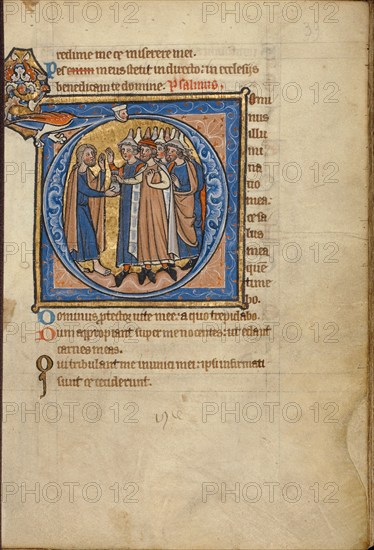 redime me & miserere mei.
Pes enim meus stetit in directo: in ecclesiis
benedicam te domine. Psalmus.
omi
nus
illu
mi
na
tio
mea:
& sa
lus
mea
que
time
bo.
Dominus ptector uite mee: a quo trepidabo.
Dum appropiant super me nocentes: ut edant
carnes meas.
Qui tribulant me inimici mei: ipsi infirmati
sunt & ceciderunt.
PHOTO 12